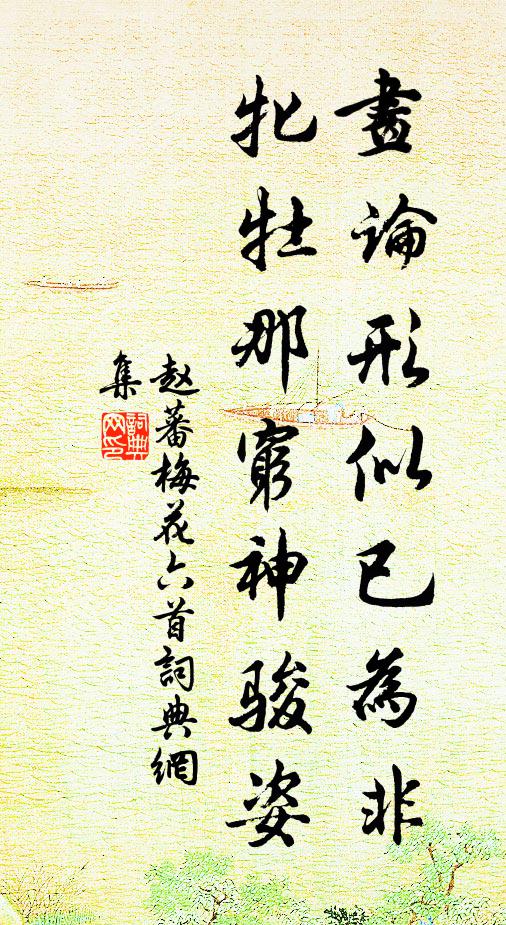 畫論形似已為非
牝牡那窮神骏姿
赵蕃梅花六首詞典網
集
詞典网印